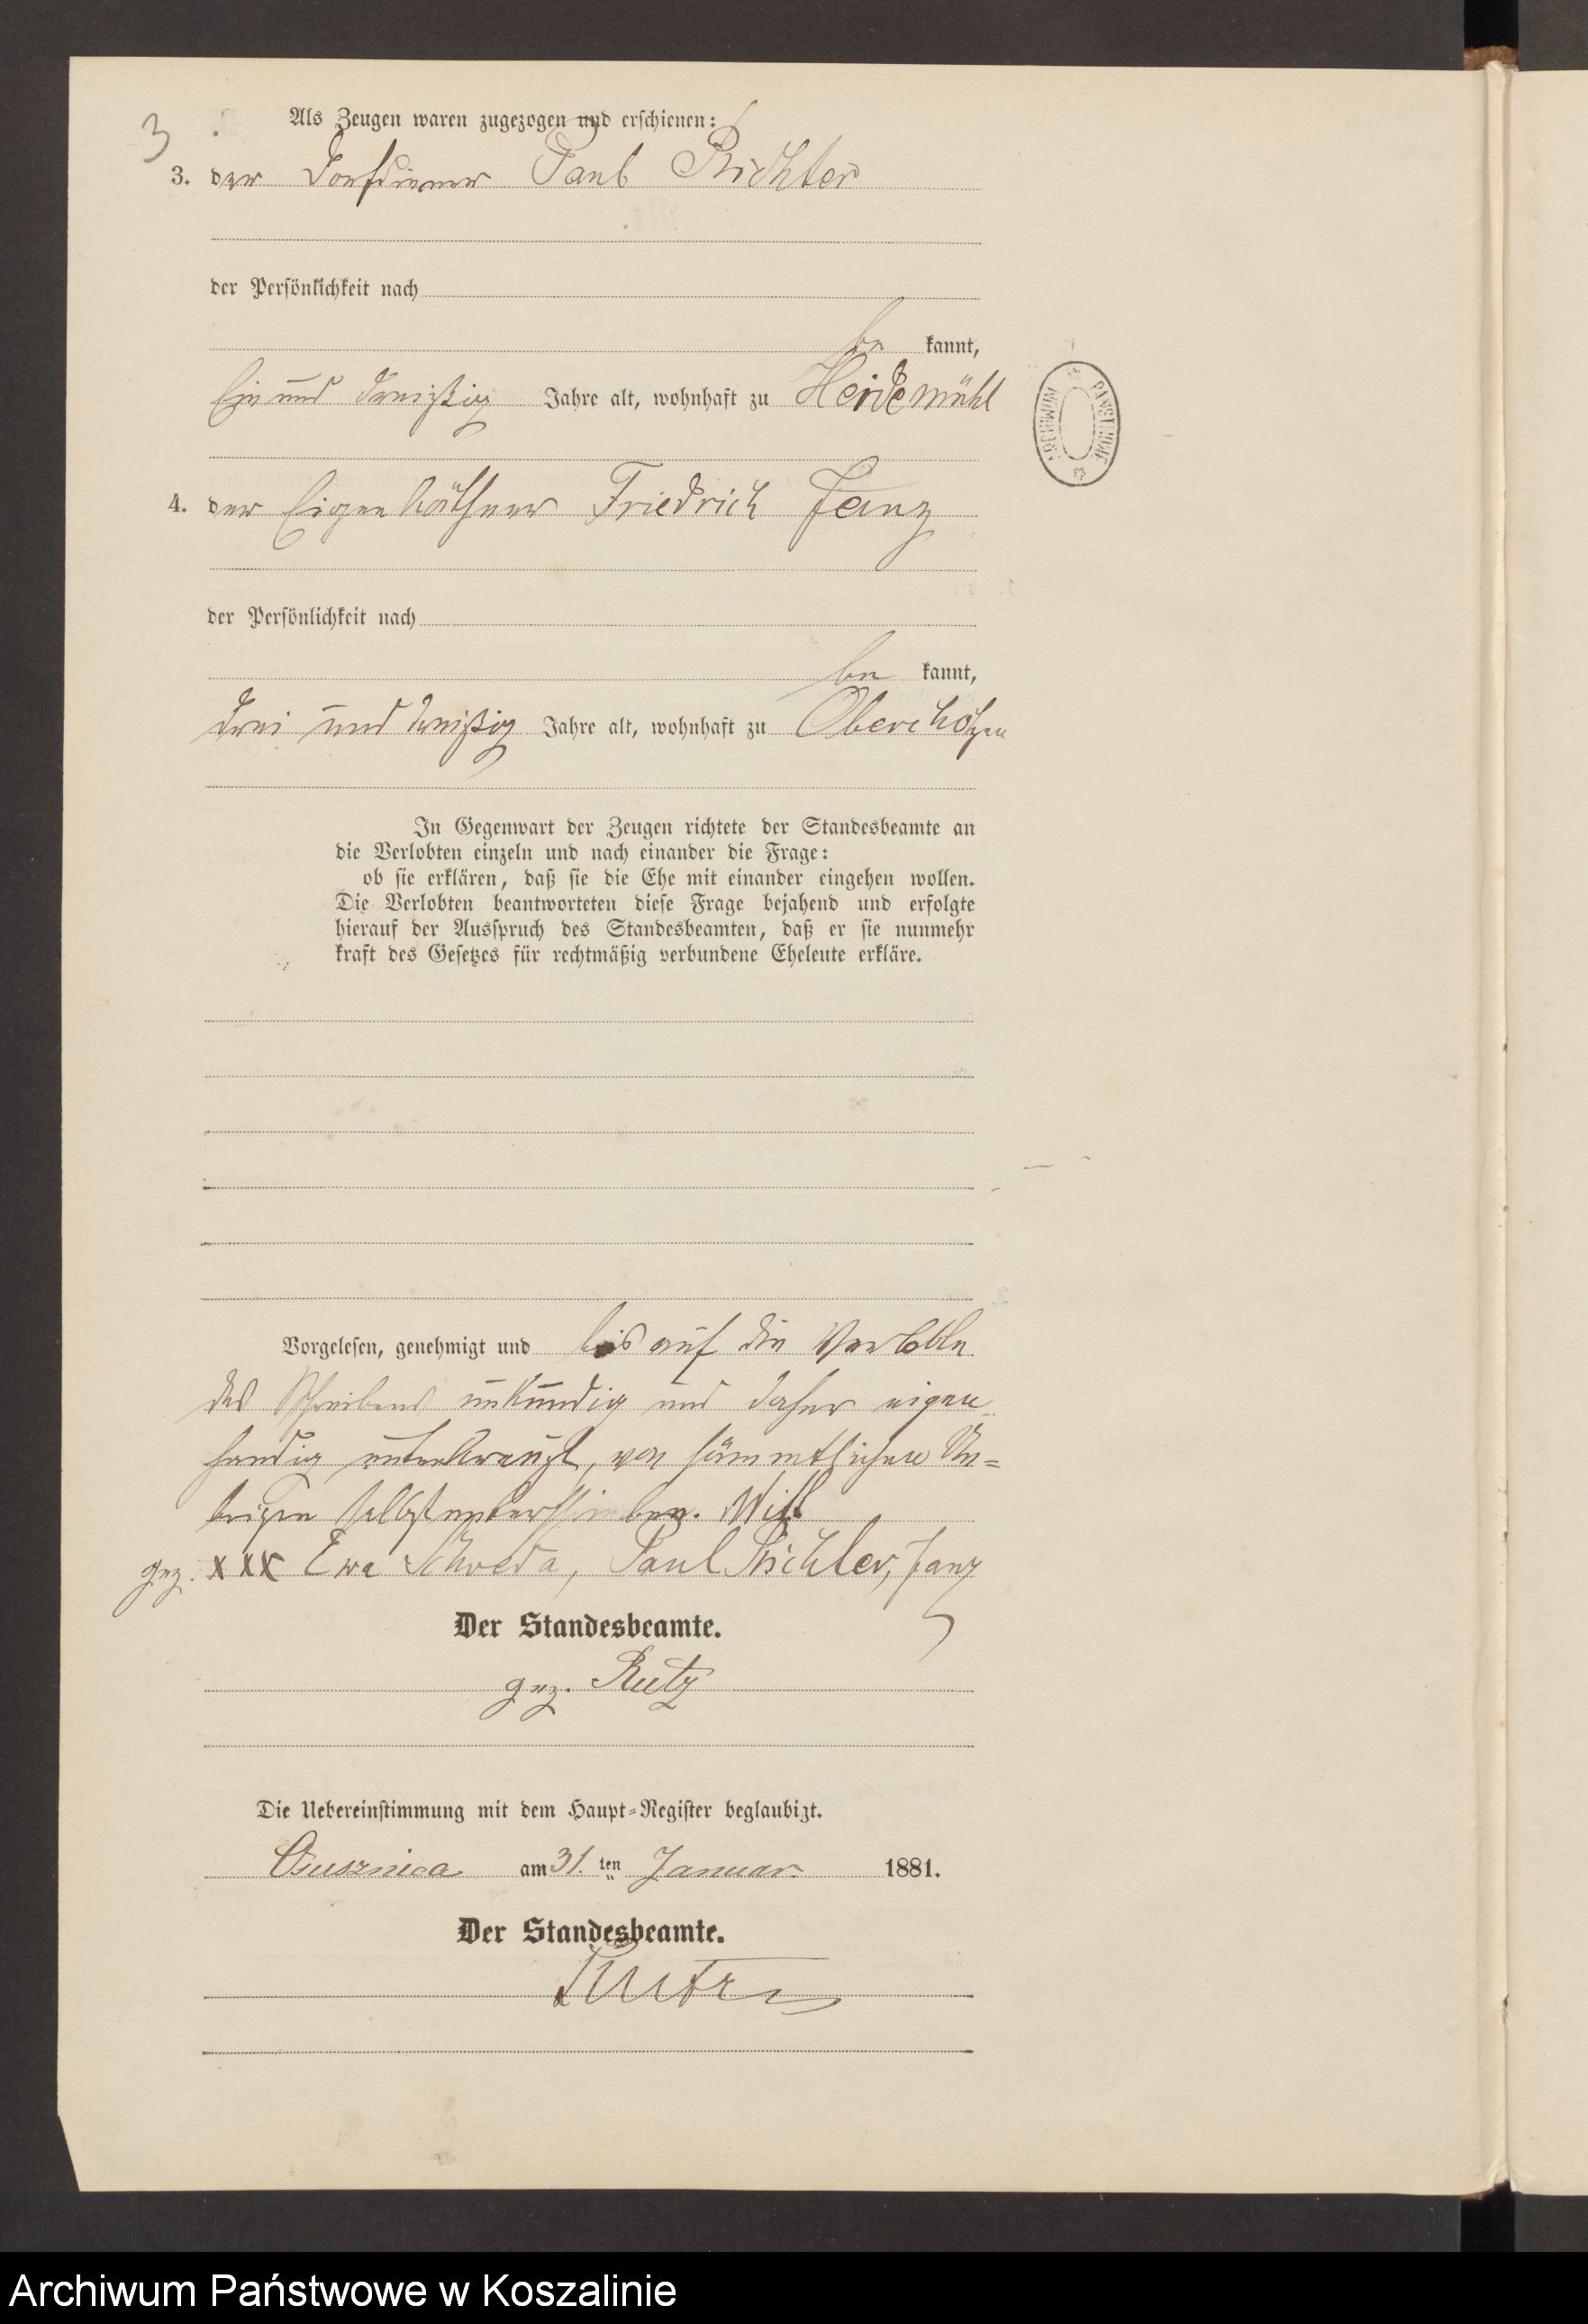 3
Als Zeugen waren zugezogen und erschienen:
3. der Dorfdiener Paul Richter
der Persönlichkeit nach
be kannt,
Ein und dreißig Jahre alt, wohnhaft zu Heidemühl
4. der Eigenkäthner Friedrich Janz
der Persönlichkeit nach
be kannt,
drei und dreißig Jahre alt, wohnhaft zu
In Gegenwart der Zeugen richtete der Standesbeamte an
die Verlobten einzeln und nach einander die Frage:
ob sie erklären, daß sie die Ehe mit einander eingehen wollen.
Die Verlobten beantworteten diese Frage bejahend und erfolgte
hierauf der Ausspruch des Standesbeamten, daß er sie nunmehr
kraft des Gesetzes für rechtmäßig verbundene Eheleute erkläre.
Vorgelesen, genehmigt und bis auf die Verlobte
des Schreibens unkundig und daher eigen
händig unterkreuzt, von sämmtlichen Ue=
brigen selbst unterschrieben.
gez. xxx Ewa Schweda, Paul Richter, Janz
Der Standesbeamte.
gez. Rutz
Die Uebereinstimmung mit dem Haupt-Register beglaubigt.
am 31. ten Januar 1881.
Der Standesbeamte.
Rutz
ARCHIWUM PAŃSTWOWE
Archiwum Państwowe w Koszalinie